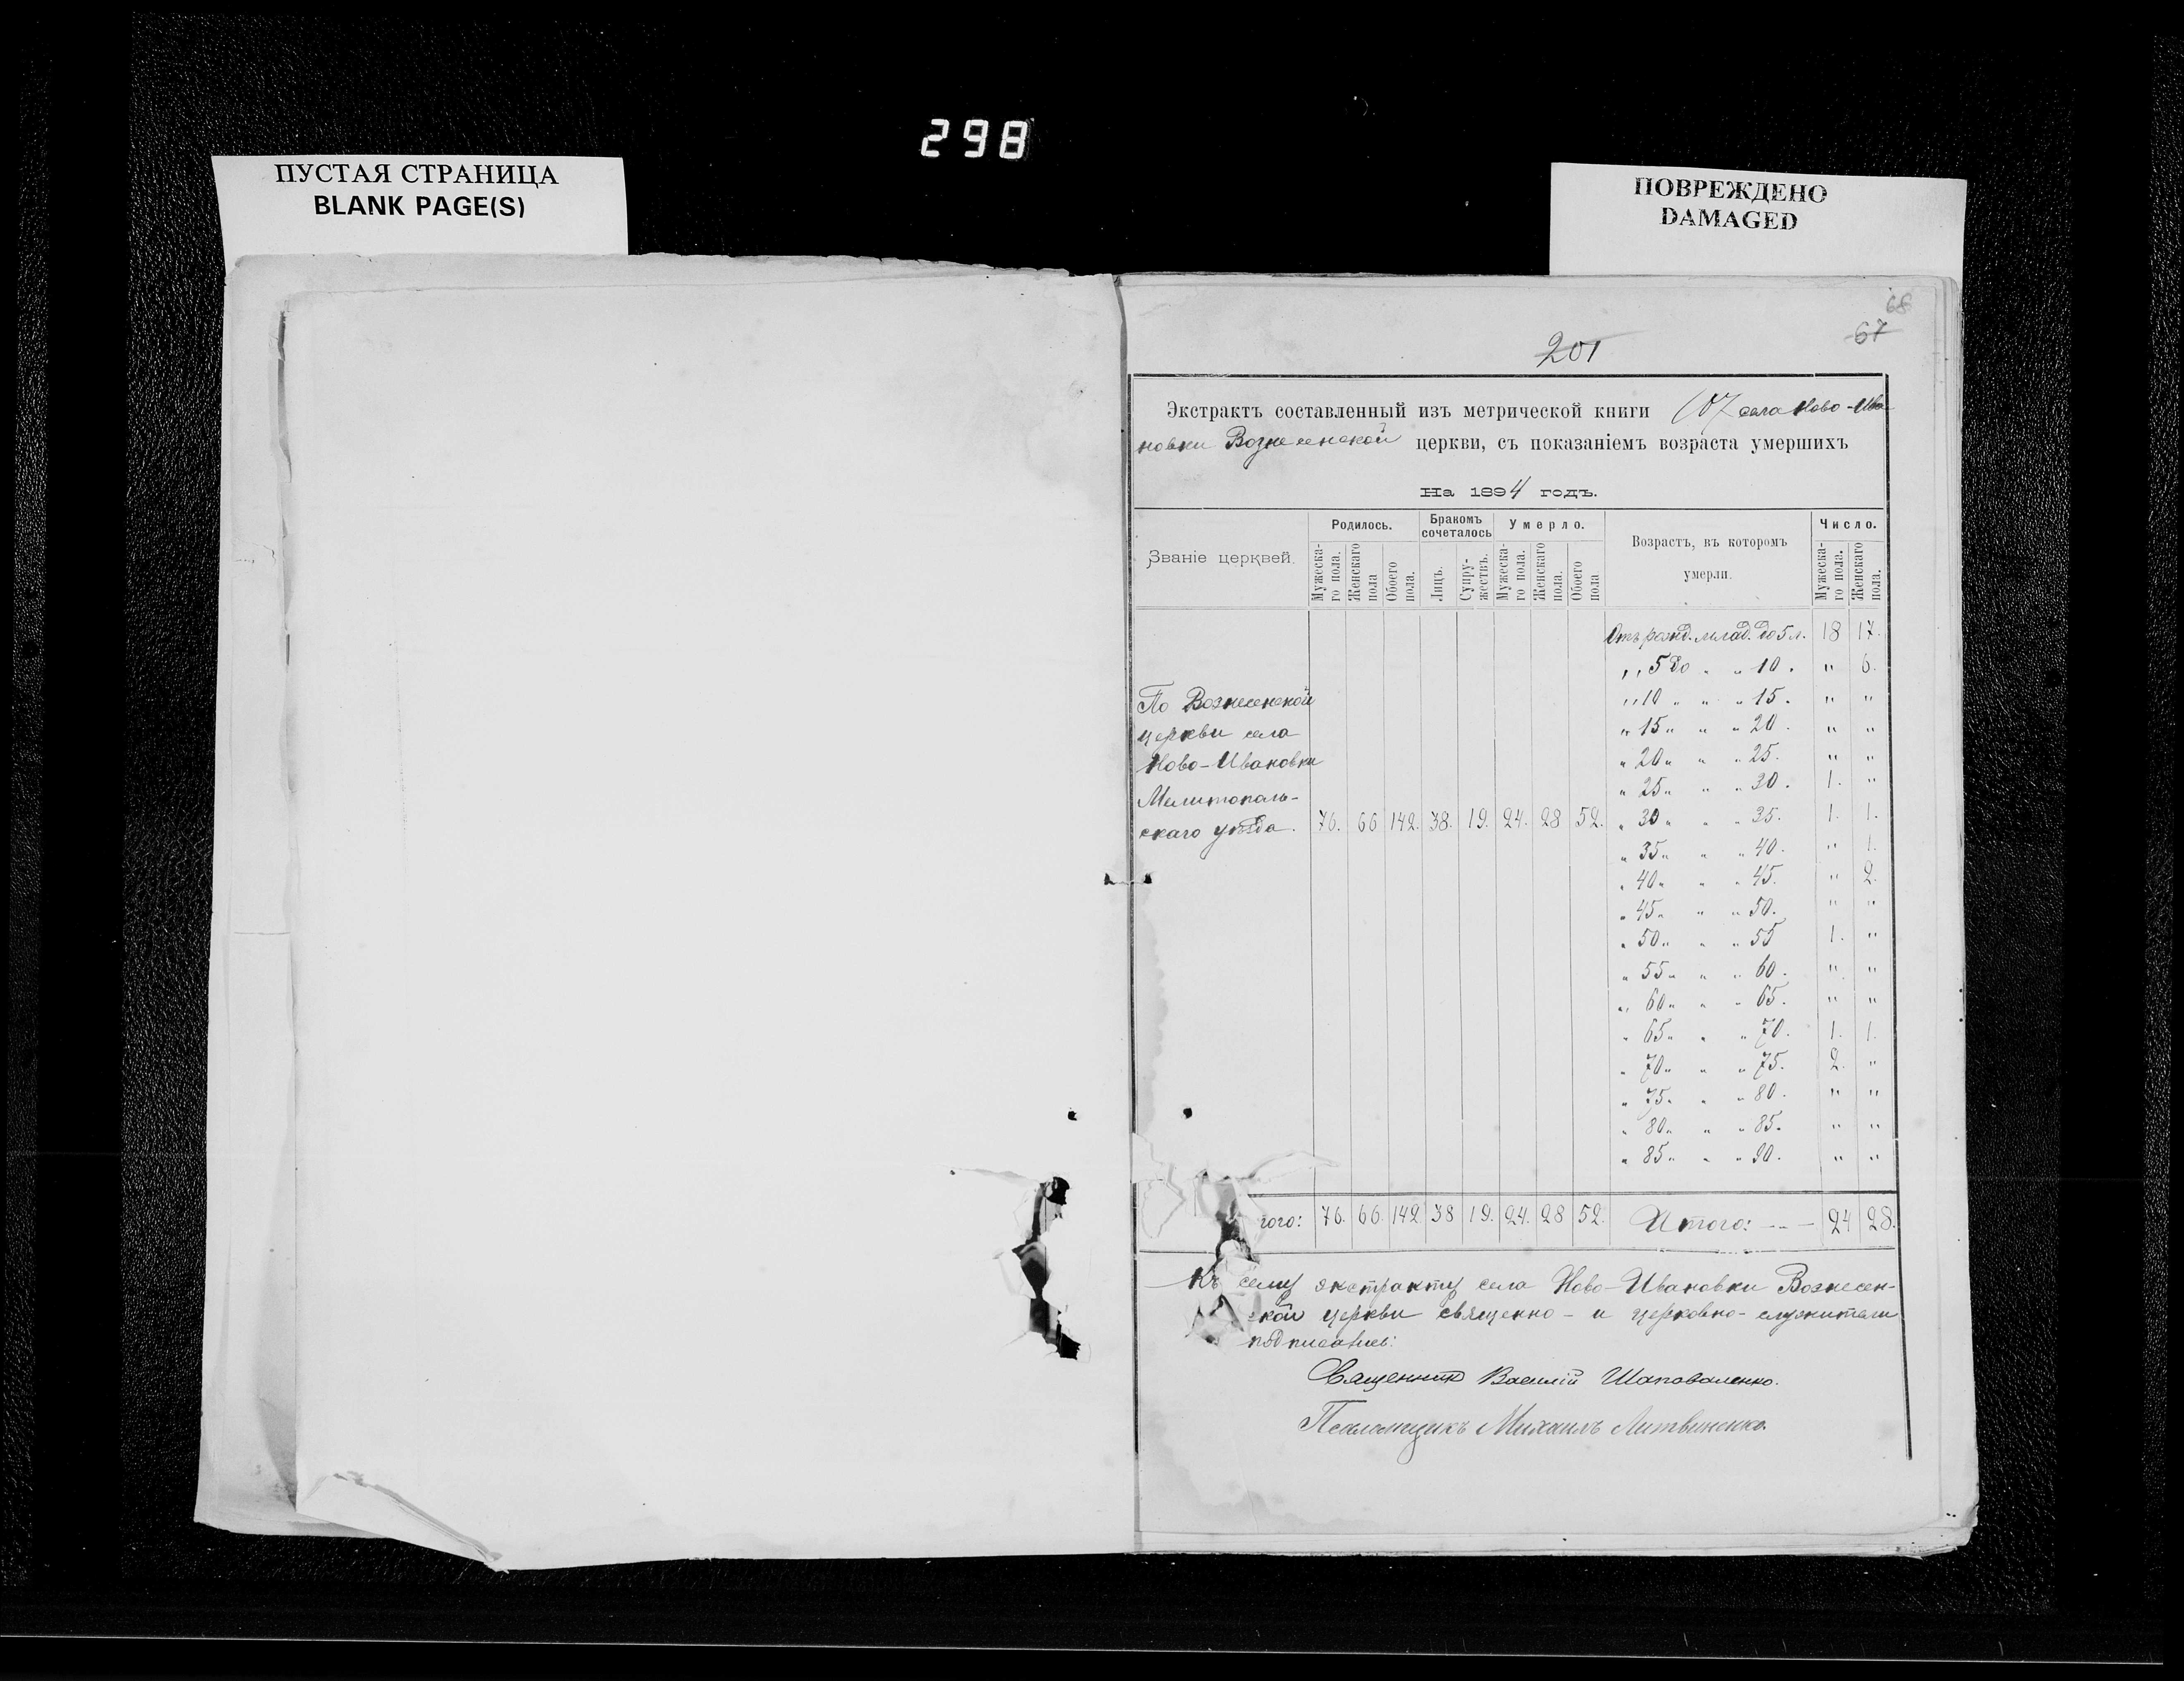 298
ПУСТАЯ СТРАНИЦА
BLANK PAGE(S)
ПОВРЕЖДЕНО
DAMAGED
68
67
201
Экстрактъ составленный изъ метрической книги 107 села Ново-Ива
новки Вознесенской церкви, съ показаніемъ возраста умершихъ
На 1894 годъ.
Званіе церквей. Родилось. Бракомъ сочеталось Умерло. Возрастъ, въ которомъ умерли. Число.
Мужеска-го пола. Женскаго пола Обоего пола. Лицъ. Супру-жествъ. Мужеска-го пола. Женскаго пола. Обоего пола Мужеска-го пола. Женскаго пола.
Отъ рожд. млад. до 5 л. 18 17.
„ 5 до „ „ 10. „ 6.
По Вознесенской „ 10 „ „ „ 15. „ „
церкви села „ 15 „ „ „ 20. „ „
Ново-Ивановки „ 20 „ „ „ 25. „ „
Мелитополь- „ 25 „ „ „ 30. 1. „
скаго уѣзда. 76. 66 142. 38. 19. 24. 28 52. „ 30 „ „ „ 35. 1. 1.
„ 35 „ „ „ 40. „ 1.
„ 40 „ „ „ 45. „ 2.
„ 45 „ „ „ 50. „ „
„ 50 „ „ „ 55 1. „
„ 55 „ „ „ 60. „ „
„ 60 „ „ „ 65. „ „
„ 65 „ „ „ 70. 1. 1.
„ 70 „ „ „ 75. 2. „
„ 75 „ „ „ 80. „ „
„ 80 „ „ „ 85. „ „
„ 85 „ „ „ 90. „ „
того: 76. 66. 142 38 19. 24. 28 52. Итого: - - - 24 28.
Къ сему экстракту села Ново-Ивановки Вознесен-
ской церкви священно- и церковно-служители
подписались:
Священникъ Василій Шаповаленко.
Псаломщикъ Михаилъ Литвиненко.